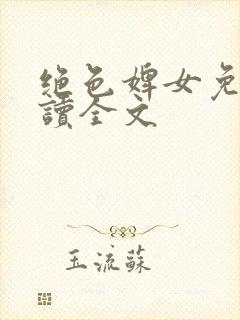 绝色婢女免
讀全文
玉流蘇